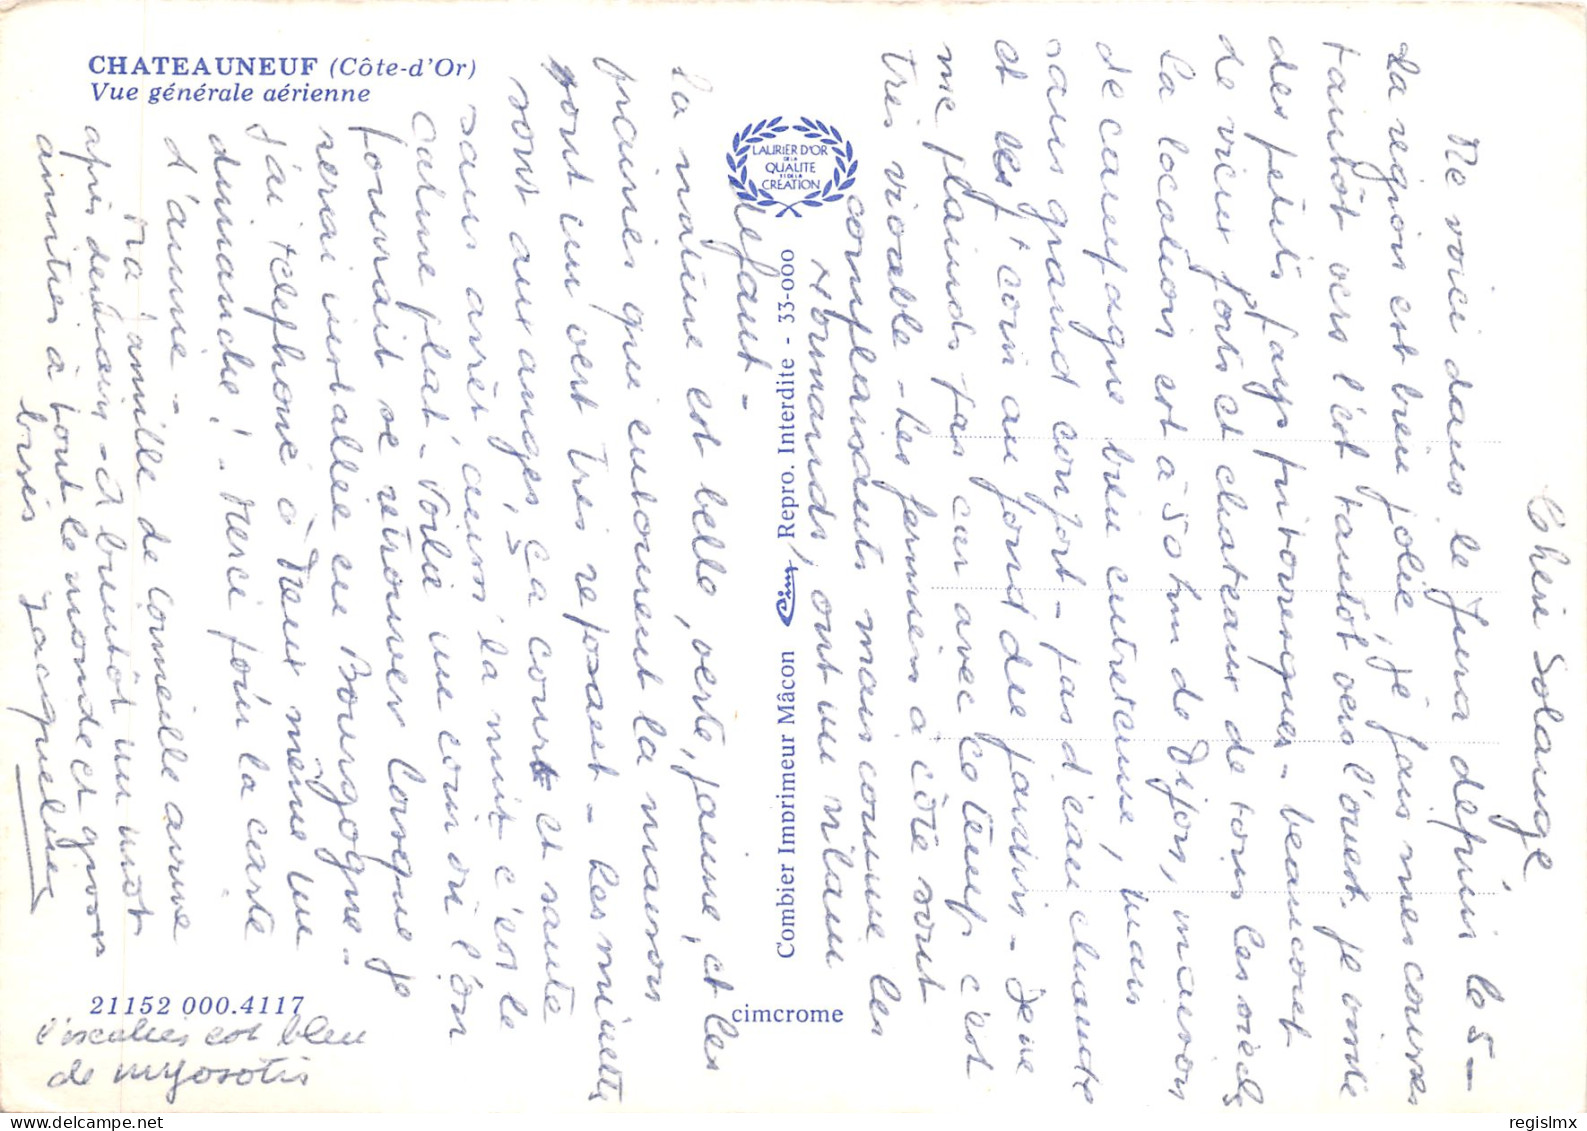 CHATEAUNEUF (Côte-d'Or)
Vue générale aérienne
LAURIER D'OR
DE LA
QUALITE
ET DE LA
CRÉATION
Combier Imprimeur Mâcon Cim Repro. Interdite - 33-000
21152 000.4117
cimcrome
Chère Solange
Me voici dans le Jura depuis le 5 -
La région est bien jolie, je fais mes courses
tantôt vers l'est tantôt vers l'ouest. je visite
des petits pays pittoresques - beaucoup
de vieux forts et chateaux de tous les siècles
La location est à 50 km de Dijon, maison
de campagne bien entretenue, mais
sans grand confort - pas d'eau chaude
et les t coin au fond du jardin - Je ne
me plains pas car avec ce temps c'est
très vivable - Les fermiers à côté sont
complaisants mais comme les
Normands, ont un vilain
défaut -
La nature est belle, verte, jaune, et les
prairies qui entourent la maison
sont un vert très reposant - Les minettes
sont aux anges, ça court et saute
sans arrêt aussi la nuit c'est le
calme plat - Voilà un coin où l'on
pourrait se retrouver lorsque je
serai installée en Bourgogne -
J'ai téléphoné à Mr même un
dimanche ! Merci pour la carte
d'année -
Ma famille de Corneille arrive
après demain - A bientôt un mot
amitiés à tout le monde et grosses
bises Jacqueline
l'escalier est bleu
de myosotis
regislmx